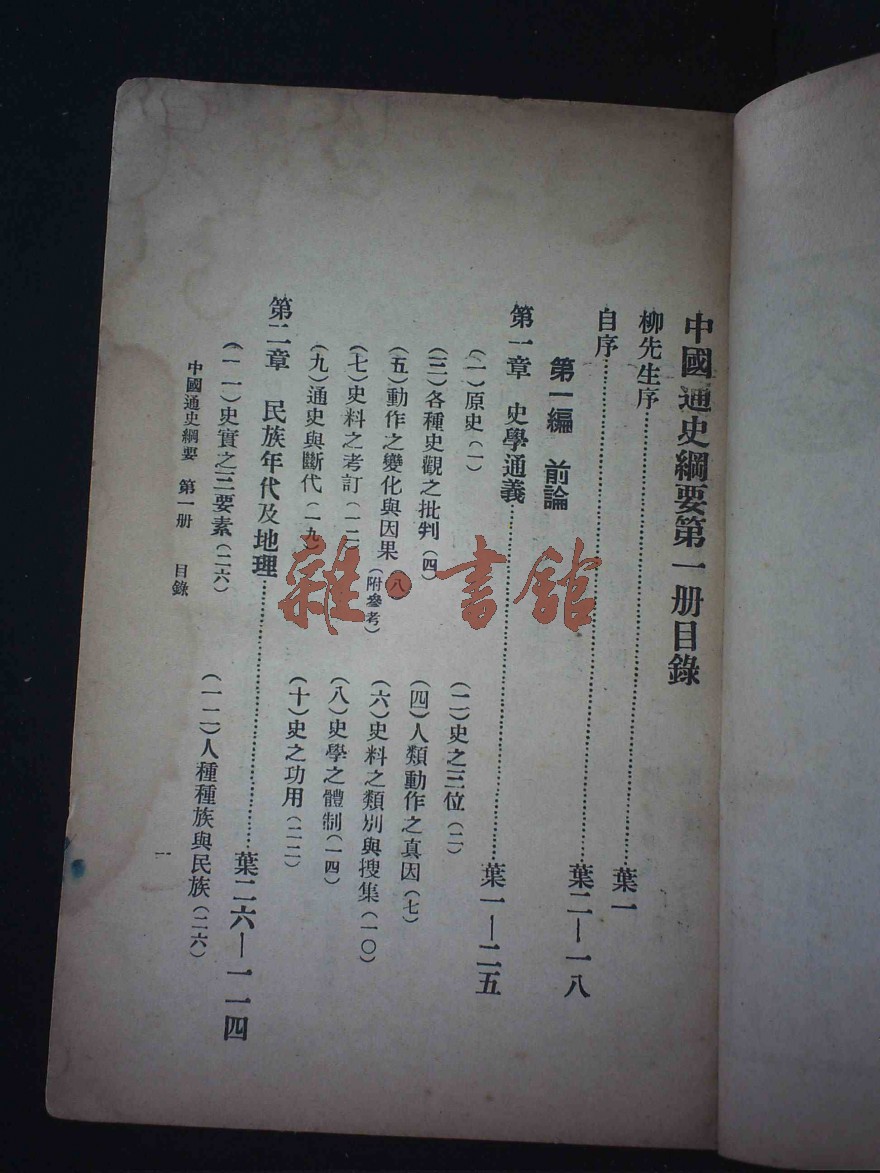 中國通史綱要第一册目錄
柳先生序……葉一
自序……葉二—一八
第一編　前論
第一章　史學通義……葉一—二五
（一）原史（一）　（二）史之三位（二）
（三）各種史觀之批判（四）　（四）人類動作之真因（七）
（五）動作之變化與因果（八）（附參考）　（六）史料之類別與搜集（一〇）
（七）史料之考訂（一二）　（八）史學之體制（一四）
（九）通史與斷代（一九）　（十）史之功用（二二）
第二章　民族年代及地理……葉二六—一一四
（一一）史實之三要素（二六）　（一二）人種種族與民族（二六）
中國通史綱要　第一册　目錄　一
雜·書館